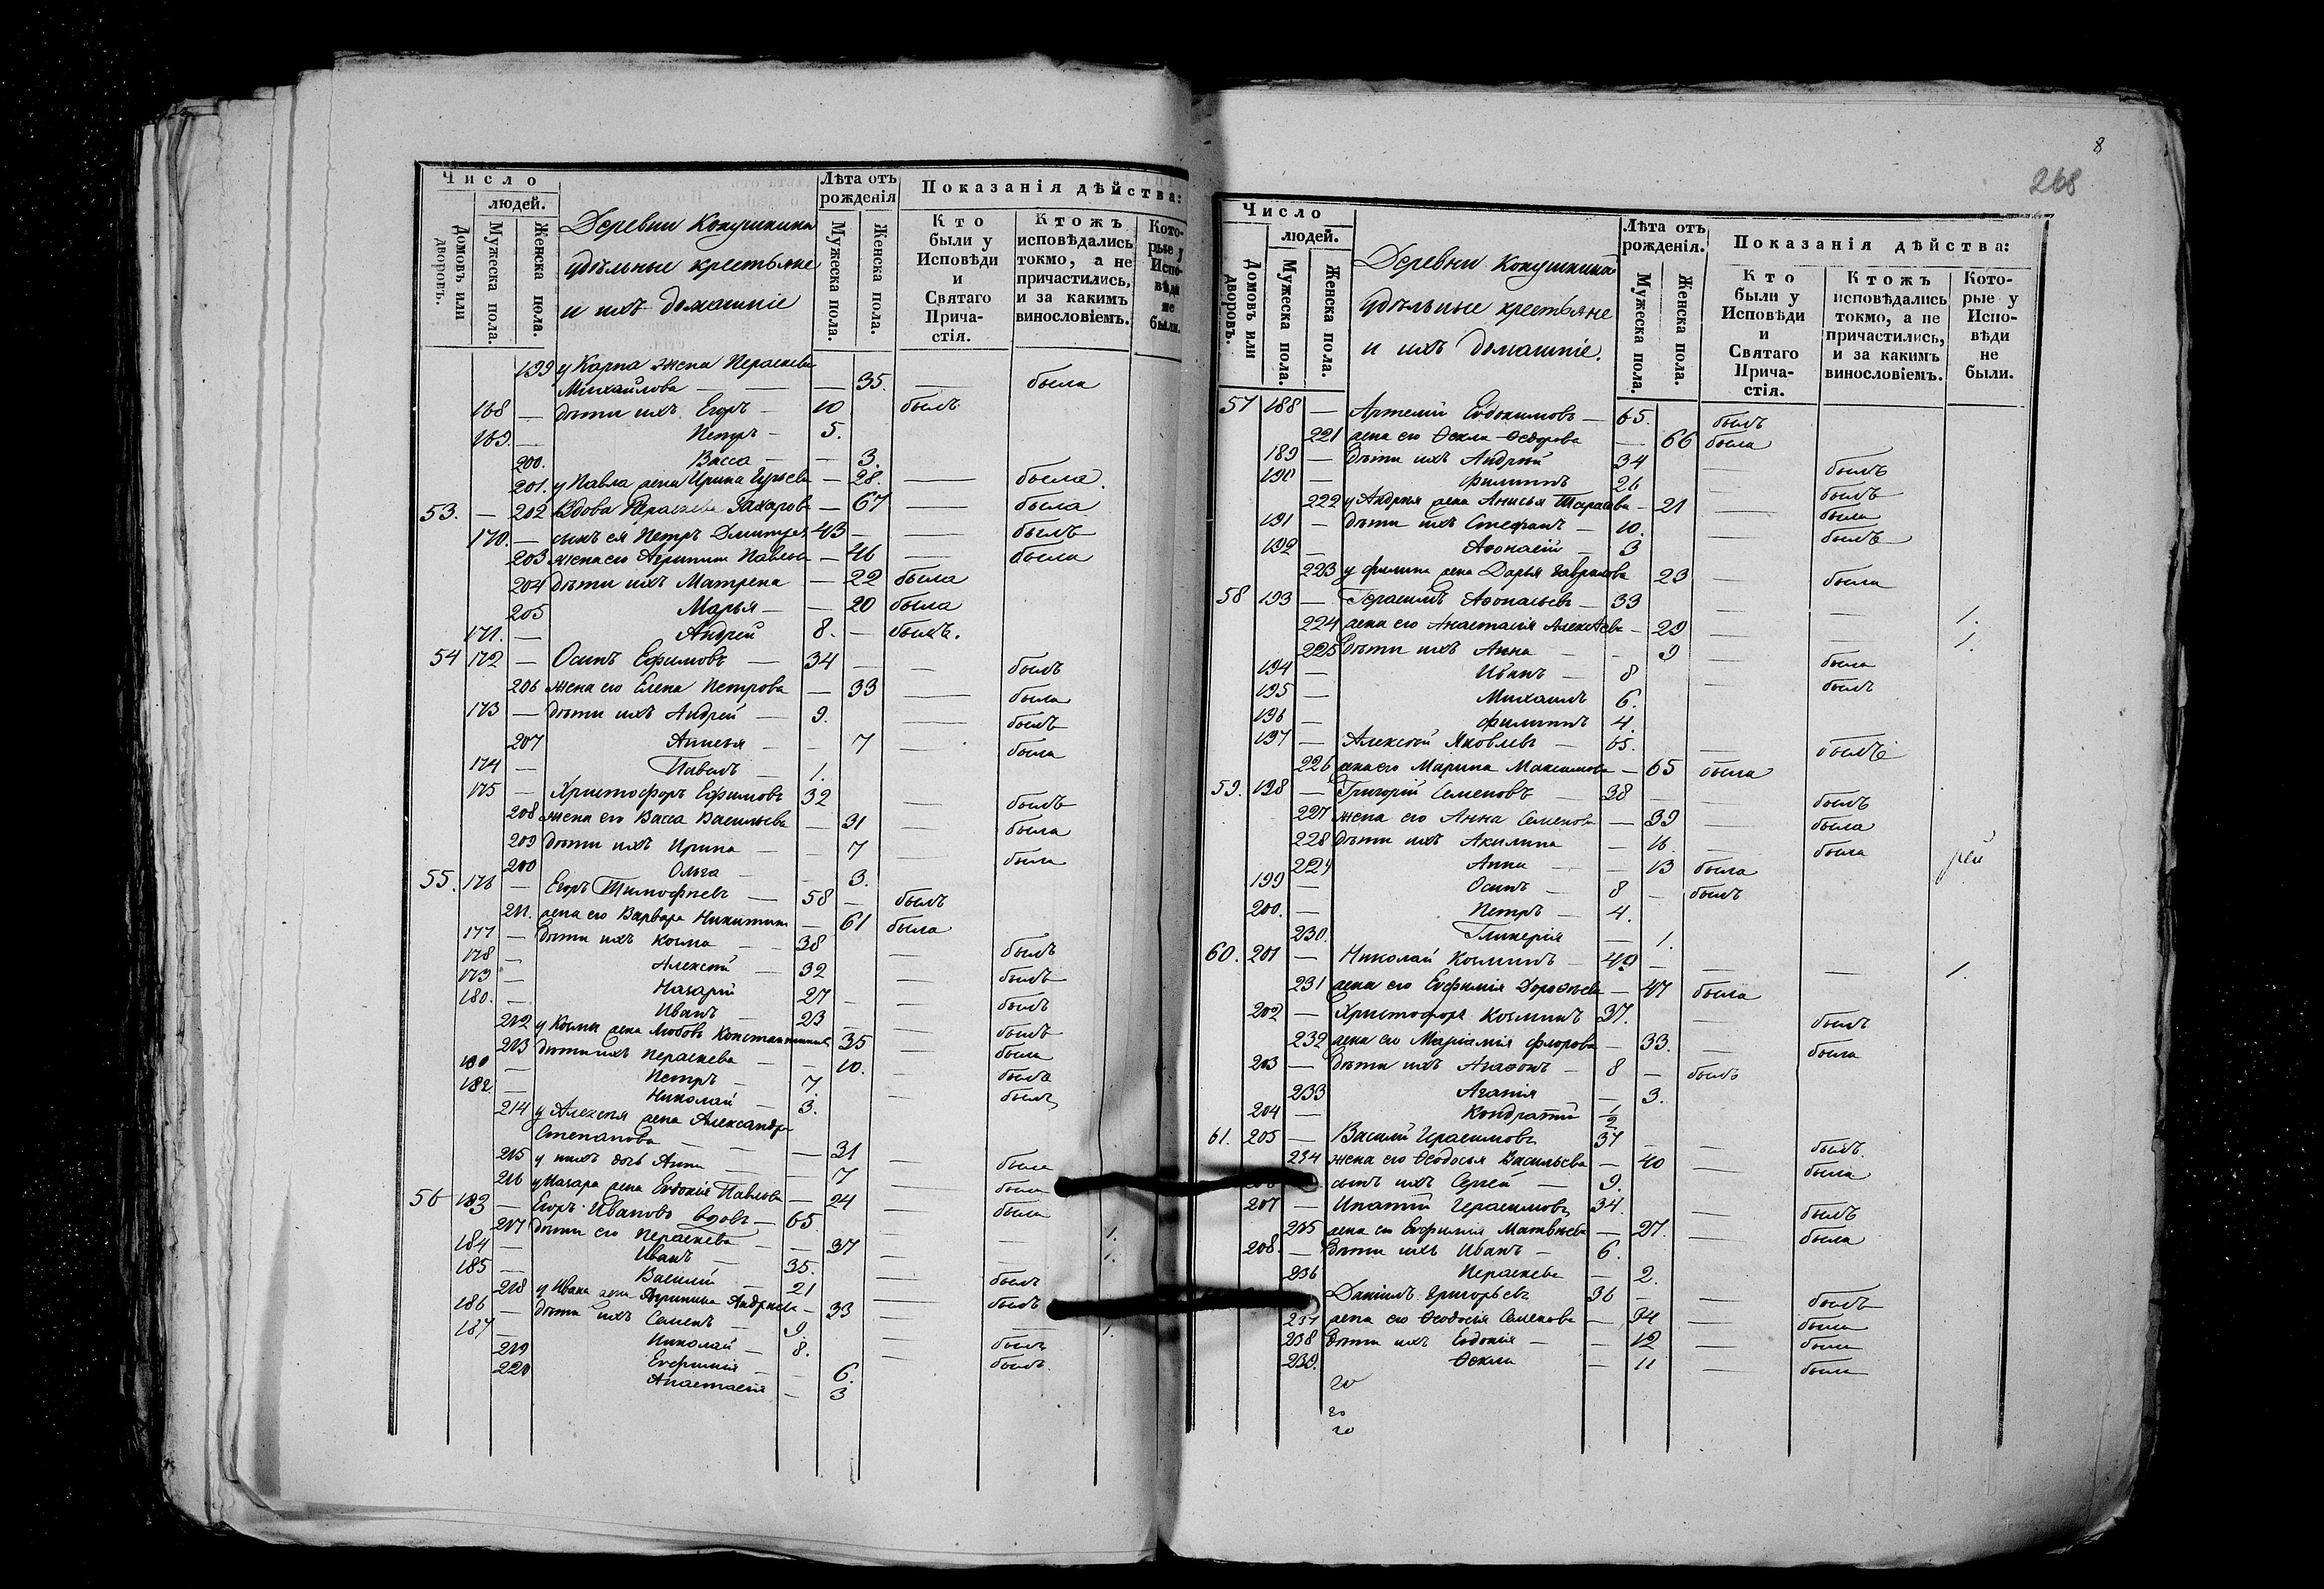 Число
людей.
Домовъ или дворовъ.
Мужеска пола.
Женска пола.
Деревни Кокушкина
удѣльные крестьяне
и ихъ домашніе
Лѣта отъ рожденія
Мужеска пола.
Женска пола.
Показанія дѣйства:
Кто были у Исповѣди и Святаго Прича-стія.
Ктожъ исповѣдались токмо, а не причастились, и за какимъ винословіемъ.
Кото-рые у Испо-вѣди не были.
199 у Карпа жена Параскева
Михайлова — — 35. — была
168 — дѣти ихъ Егоръ — 10 былъ
169. — Петръ — 5.
200. Васса — — 3.
201. у Павла жена Ирина Гурьева — 28. — была.
53. — 202 Вдова Параскева Захарова — 67 — была
170. — сынъ ея Петръ Дмитріев 43 — — былъ
203 жена его Агрипина Павлова — 46 — была
204 дѣти ихъ Матрена — 22 была
205 Марья — — 20 была
171. — Андрей 8. — былъ.
54 172 — Осипъ Ефимовъ — 34 — — былъ
206 жена его Елена Петрова — 33 — была
173 — дѣти ихъ Андрей — 9. — былъ
207 Анисья — — 7 — была
174 — Павелъ — 1.
175 — Христофоръ Ефимовъ 32 — былъ
208 жена его Васса Васильева — 31 — была
209 дѣти ихъ Ирина — — 7 — была
200 Ольга — — 3.
55. 176 — Егоръ Тимофѣевъ — 58 — былъ
211. жена его Варвара Никитина — 61 была
177 — дѣти ихъ Козма — — 38 — былъ
178 — Алексѣй — 32 — былъ
179 — Назарій 27 — — былъ
180. — Иванъ — 23 — — былъ
212 у Козмы жена Любовь Константинова 35 — была
213 дѣти ихъ Параскева — — 10. — была
180 — Петръ — 7. — былъ
182. — Николай — 3.
214 у Алексѣя жена Александра
Степанова — — 31 — была
215 у нихъ дочь Анна — — 7 — была
216 у Назара жена Евдокія Павлова — 24 — была
56 183 — Егоръ Ивановъ вдовъ — 65 — — 1.
217 дѣти его Параскева — — 37 — — 1.
184 — Иванъ — 35. — былъ
185 — Василій — 21 — былъ
218 у Ивана жена Агрипина Андреева — 33 — — 1.
186 — дѣти ихъ Семенъ — 9. — былъ
187 — Николай — 8. — былъ
219 Евфимія — — 6.
220 Анастасія — 3
8
268
Число
людей.
Домовъ или дворовъ.
Мужеска пола.
Женска пола.
Деревни Кокушкина
удѣльные крестьяне
и ихъ домашніе.
Лѣта отъ рожденія.
Мужеска пола.
Женска пола.
Показанія дѣйства:
Кто были у Исповѣди и Святаго Прича-стія.
Ктожъ исповѣдались токмо, а не причастились, и за какимъ винословіемъ.
Кото-рые у Испо-вѣди не были.
57 188 — Артемій Евдокимовъ — 65. былъ
221 жена его Ѳекла Ѳедорова — 66 была
189 — дѣти ихъ Андрей 34 — былъ
190 — Филиппъ 26 — былъ
222 у Андрея жена Анисья Тарасова — 21 — была
191 — дѣти ихъ Стефанъ — 10. — былъ
192 — Аѳонасій — 3
223 у Филипа жена Дарья Гаврилова 23 — была
58 193 — Герасимъ Аѳонасьевъ — 33 — — 1.
224 жена его Анастасія Алексѣева — 29 — — 1.
225 дѣти ихъ Анна — — 9 — была
194 — Иванъ — 8 — былъ
195 — Михаилъ 6.
196 — Филиппъ 4.
197 — Алексѣй Яковлевъ — 65. — былъ
226 жена его Марина Максимова — 65 была
59. 198 — Григорій Семеновъ — 38 — — былъ
227 жена его Анна Семенова — 39 — была
228 дѣти ихъ Акилина — 16. — была
229 Анна — 13 была
199 — Осипъ — 8 — былъ
200. — Петръ — 4.
230. Гликерія — 1.
60. 201 — Николай Козминъ — 49 — — — 1.
231 жена его Евфимія Дороѳеева — 47 была
202 — Христофоръ Козминъ 37. — былъ
232 жена его Маріамія Флорова — 33. — была
203 — дѣти ихъ Агаѳонъ — 8 — былъ
233 Агапія — 3.
204 — Кондратій 1/2
61. 205 — Василій Герасимовъ 37 — — былъ.
234 жена его Ѳеодосья Васильева — 40 — была
сынъ ихъ Сергей — 9.
207 — Ипатій Герасимовъ 34. — былъ
235 жена его Евфимія Матвѣева — 27. — была
208. — дѣти ихъ Иванъ — 6.
236 Параскева — 2.
Даніилъ Григорьевъ 36 — — былъ
237 жена его Ѳеодосія Семенова — 34 — была
238 дѣти ихъ Евдокія — — 12 — была
239. Ѳекла — 11 — была